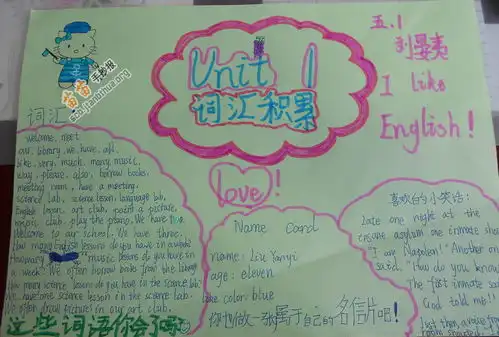 Unit 1
词汇积累
五.1
I like
English!
词汇:
welcome, meet
our, library, we have, all,
like, very, much, many, music,
way, please, also, borrow books,
meeting room, have a meeting,
science lab, science lesson, language lab,
English lesson, art club, paint a picture,
music club, play the piano. We have two
Welcome to our school. We have three.
How many English lessons do you have in a week?
How many music lessons do you have in
a week? We often borrow books from the library
How many science lessons do you have in the science lab?
We have one science lesson in the science lab.
We often draw pictures in our art club.
这些词语你会了吗?
love!
Name Card
name: Liu Yanyi
age: eleven
like color: blue
你也做一张属于自己的名片吧!
喜欢的小笑话:
Late one night at the
insane asylum one inmate shou
"I am Napoleon!" Another on
said, "How do you know
The first inmate said
God told me!
Just then, a voice from
room shouted, I